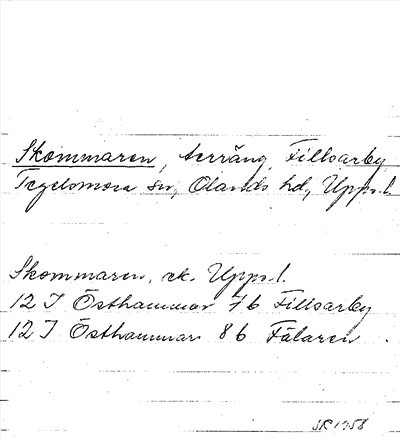 Skommaren, terräng, Fillsarby
Tegelsmora sn, Olands hd, Uppsl.
Skommaren, ek. Uppsl.
12 I Östhammar 7b Fillsarby
12 I Östhammar 8b Fälaren.